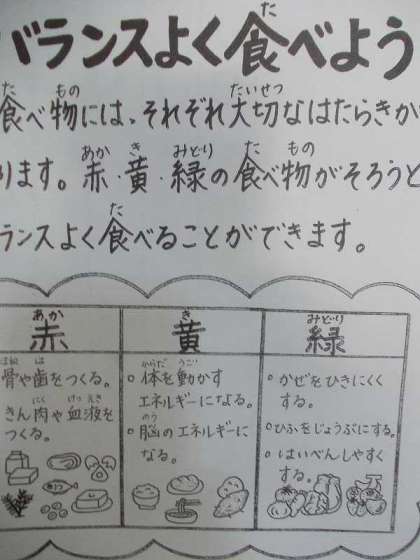 バランスよく食べよう
食べ物には、それぞれ大切なはたらきが
ります。赤・黄・緑の食べ物がそろうと
ランスよく食べることができます。
赤
骨や歯をつくる。
きん肉や血液を
つくる。
黄
○体を動かす
エネルギーになる。
○脳のエネルギーに
なる。
緑
○かぜをひきにくく
する。
○ひふをじょうぶにする。
○はいべんしやすく
する。